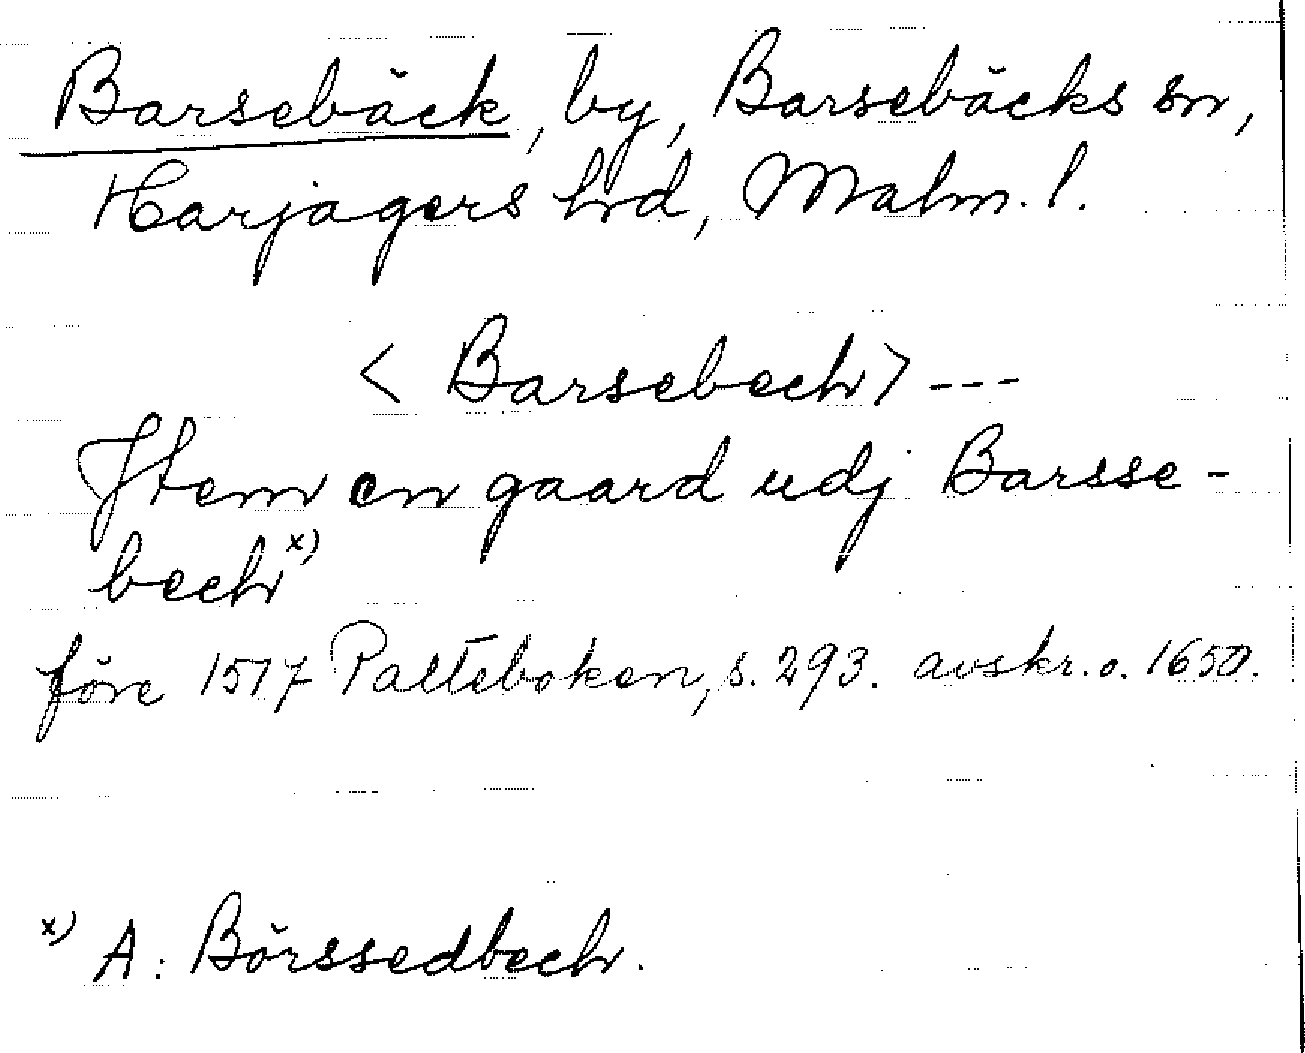 Barsebäck, by, Barsebäcks sn,
Harjagers hrd, Malm. l.
< Barsebech> ---
Jtem en gaard udj Barsse-
bech x)
före 1517 Palteboken, s. 293. avskr. o. 1650.
x) A: Börssedbech.